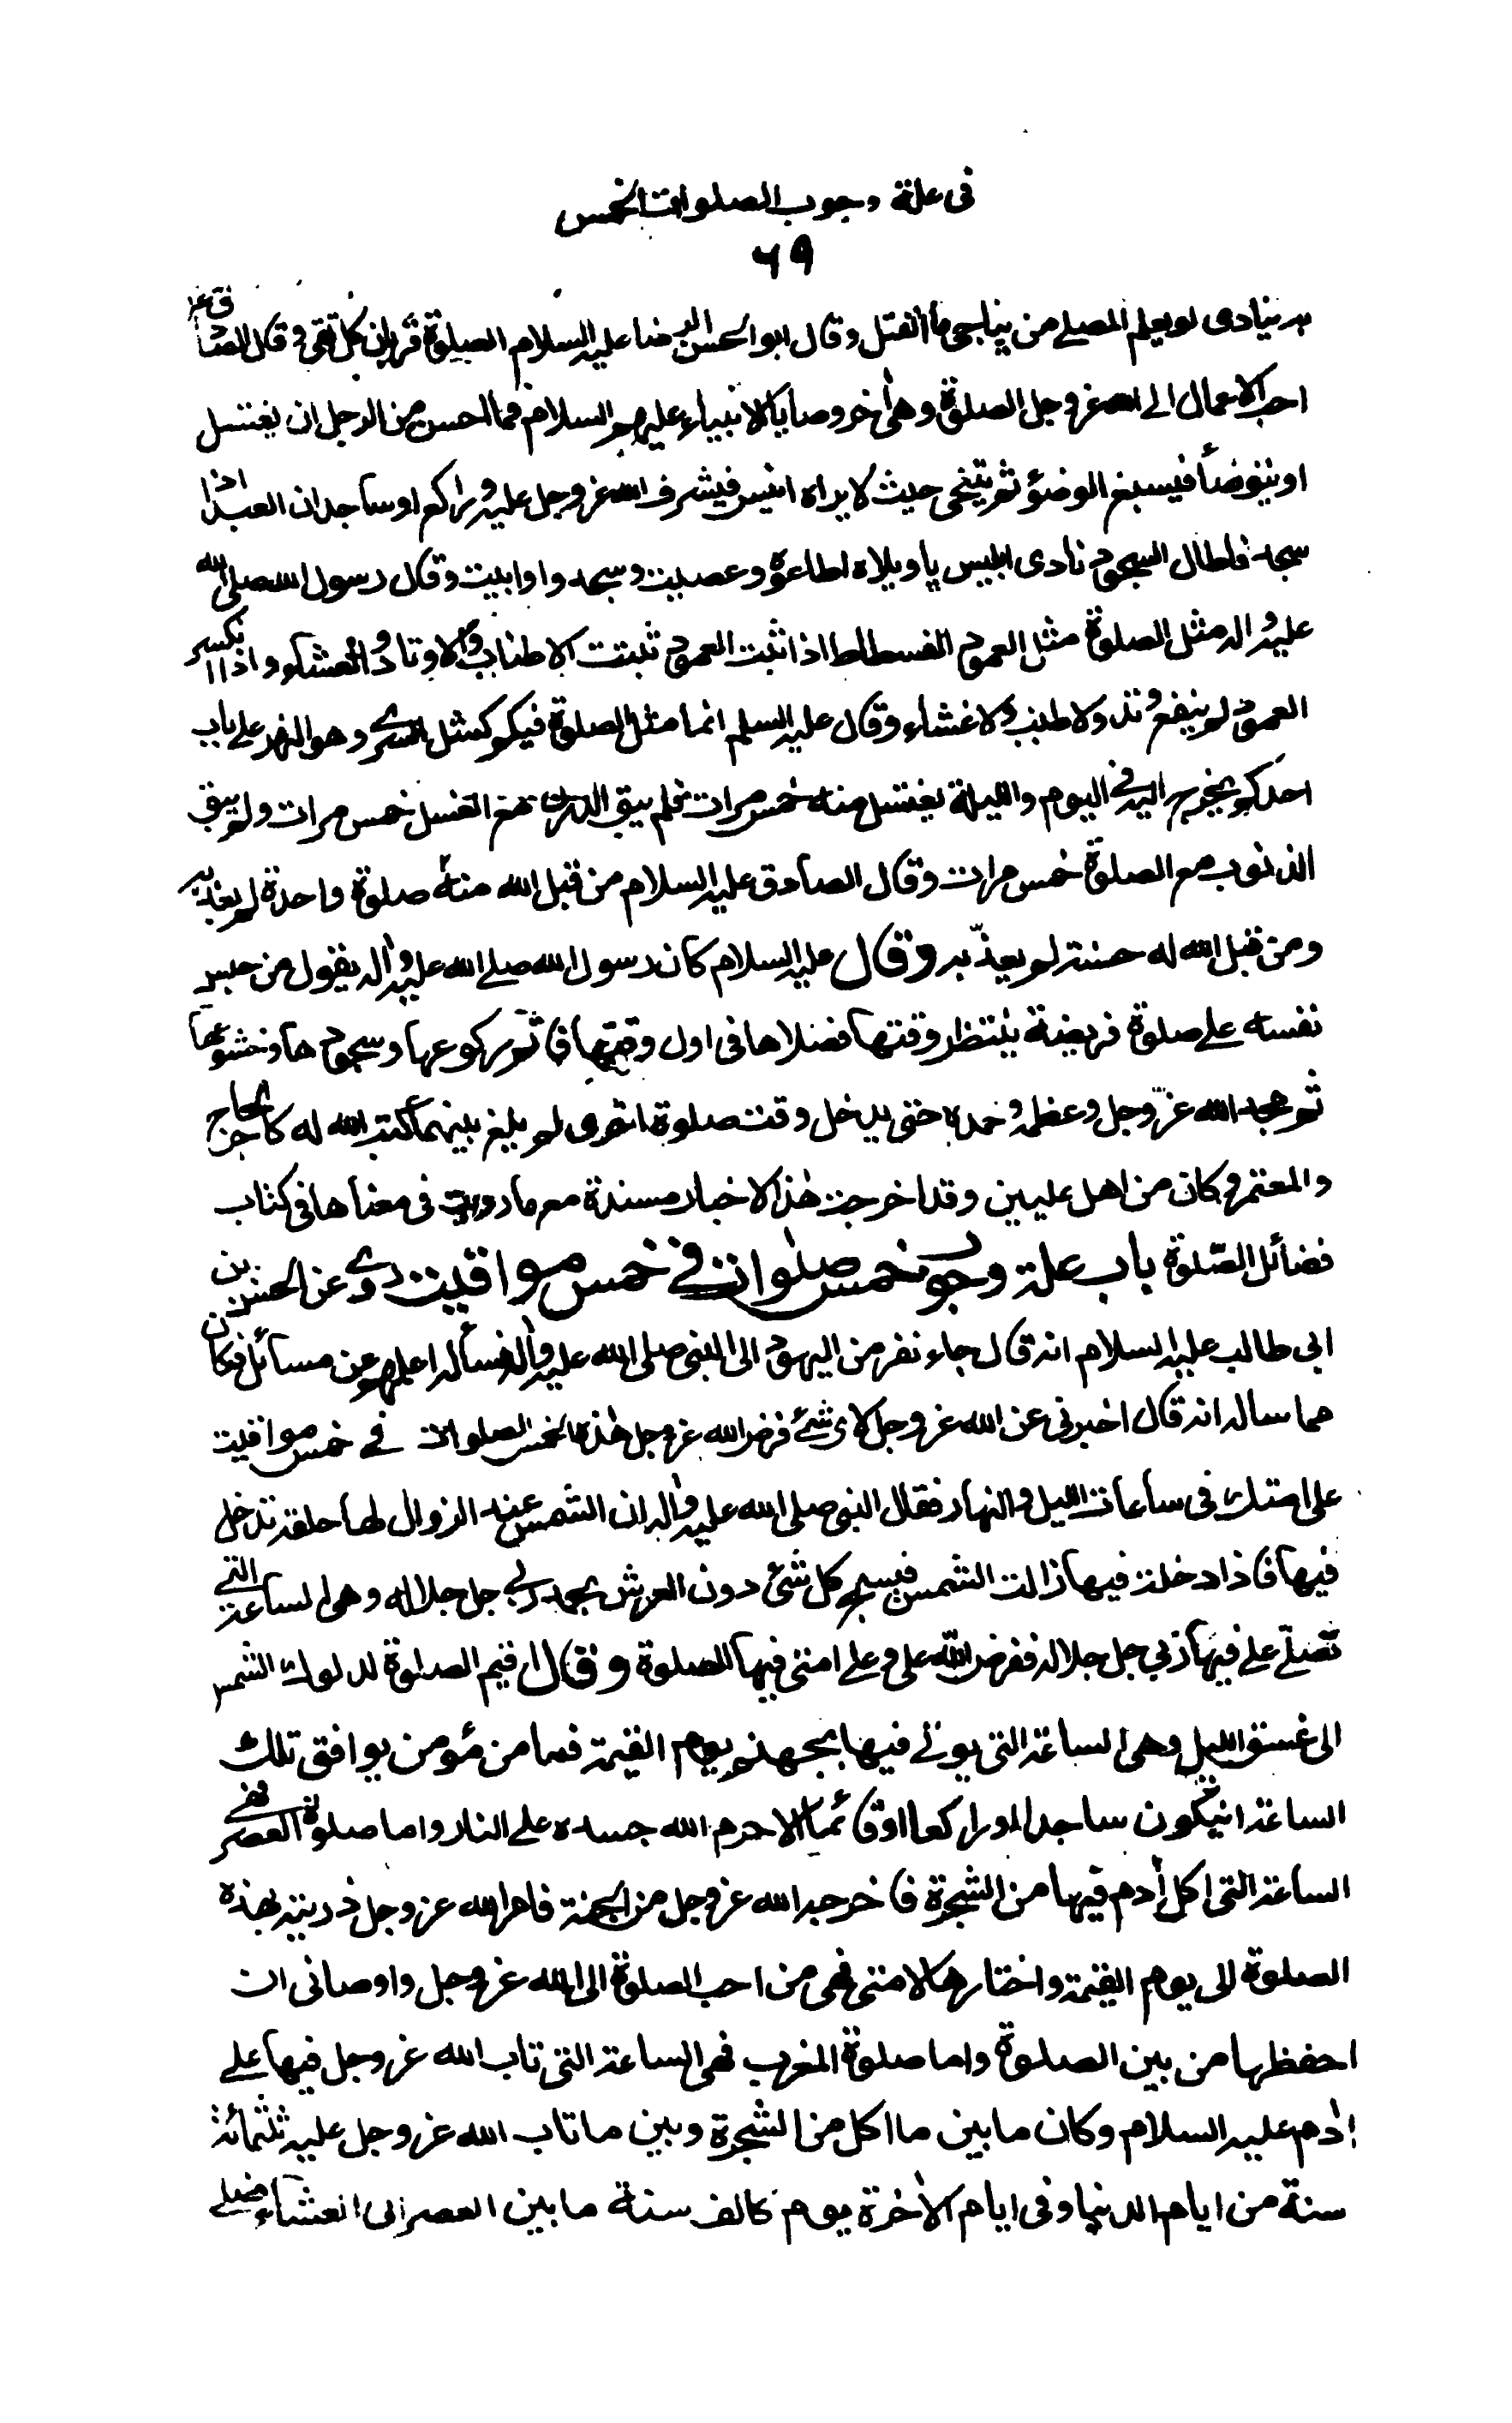 فی علة وجوب الصلوات الخمس
۶۹
به ینادی لو یعلم المصلے من یناجی ما انفتل وقال ابو الحسن الرضا علیه السلام الصلوة قربان کل تقی وقال الصادق ع
احب الاعمال الی الله عزوجل الصلوة وهی اٰخر وصایا الانبیاء علیهم السلام فما احسن من الرجل ان یغتسل
او یتوضأ فیسبغ الوضوء ثم یتنحی حیث لا یراه انیس فیشرف الله عزوجل علیه وراکع او ساجد ان العبد اذا
سجد فاطال السجود نادی ابلیس یا ویلاه اطاعوا وعصیت وسجدوا وابیت وقال رسول الله صلی الله
علیه واٰله مثل الصلوة مثل العمود الفسطاط اذا ثبت العمود ثبتت الاطناب والاوتاد والغشاء واذا انکسر
العمود لم ینفع وتد ولا طنب ولا غشاء وقال علیه السلم انما مثل الصلوة فیکم کمثل السری وهو النهر علی باب
احدکم یخرج الیه فی الیوم واللیلة یغتسل منه خمس مرات فلم یبق الدرن مع الغسل خمس مرات ولم یبق
الذنوب مع الصلوة خمس مرات وقال الصادق علیه السلام من قبل الله منه صلوة واحدة لم یعذبه
ومن قبل الله له حسنة لم یعذّبه وقال علیه السلام کان رسول الله صلے الله علیه واٰله یقول من حبس
نفسه علے صلوة فریضة ینتظر وقتها فصلاها فی اول وقتها فاتم رکوعها وسجودها وخشوعها
ثم مجد الله عزّوجل وعظمه وحمده حتی یدخل وقت صلوة اخری لم یلغ بینهما کتب الله له کاجر الحاج
والمعتمر وکان من اهل علیین وقد اخرجت هٰذه الاخبار مسندة مع ما رویت فی معناها فی کتاب
فضائل الصّلوة باب علة وجوب خمس صلوات فی خمس مواقیت روی عن الحسن بن
ابی طالب علیه السلام انه قال جاء نفر من الیهود الی النبی صلی الله علیه واٰله فسأله اعلمهم عن مسائل فکان
مما ساله انه قال اخبرنی عن الله عزوجل لای شئ فرض الله عزوجل هٰذه الخمس الصلوات فی خمس مواقیت
علی امتک فی ساعات اللیل والنهار فقال النبی صلی الله علیه واٰله ان الشمس عند الزوال لها حلقة تدخل
فیها فاذا دخلت فیها زالت الشمس فیسبح کل شئ دون العرش بحمد ربی جل جلاله وهی الساعة التی
تصلّے علے فیها ربی جل جلاله ففرض الله علی وعلے امتی فیها الصلوة وقال اقیم الصلوة لدلوک الشمس
الی غسق اللیل وهی الساعة التی یوتی فیها بجهنم یوم القیمة فما من مؤمن یوافق تلک
الساعة ان یکون ساجدا او راکعا او قائما الا حرم الله جسده علے النار واما صلوة العصر فهی
الساعة التی اکل اٰدم فیها من الشجرة فاخرجه الله عزوجل من الجنة فامر الله عزوجل ذریته بهذه
الصلوة الی یوم القیمة واختارها لامتی فهی من احب الصلوة الی الله عزوجل واوصانی ان
احفظها من بین الصلوة واما صلوة المغرب فهی الساعة التی تاب الله عزوجل فیها علے
اٰدم علیه السلام وکان ما بین ما اکل من الشجرة وبین ما تاب الله عزوجل علیه ثلثمائة
سنة من ایام الدنیا وفی ایام الاٰخرة یوم کالف سنة ما بین العصر الی العشاء فصلے